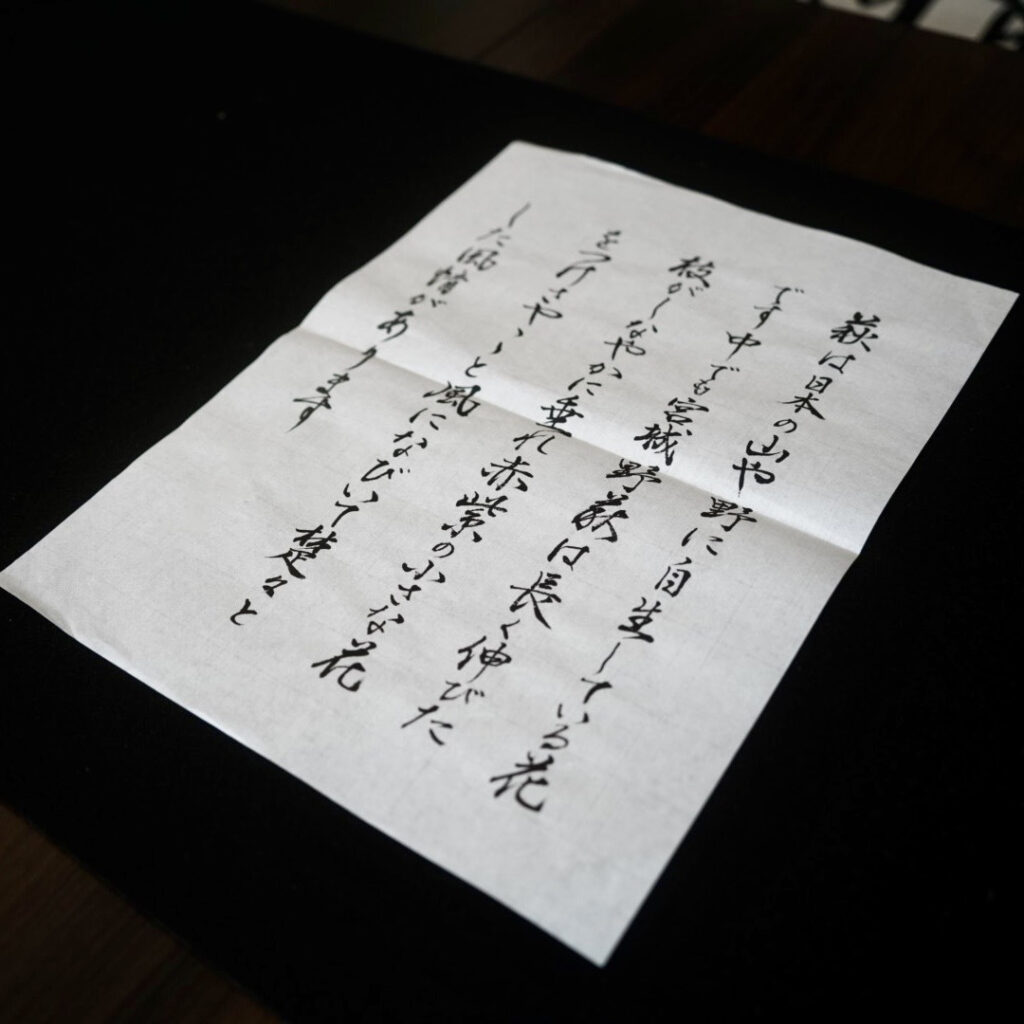 萩は日本の山や野に自生している花
です中でも宮城野萩は長く伸びた
枝がしなやかに垂れ赤紫の小さな花
をつけさやゝと風になびいて楚々と
した風情があります